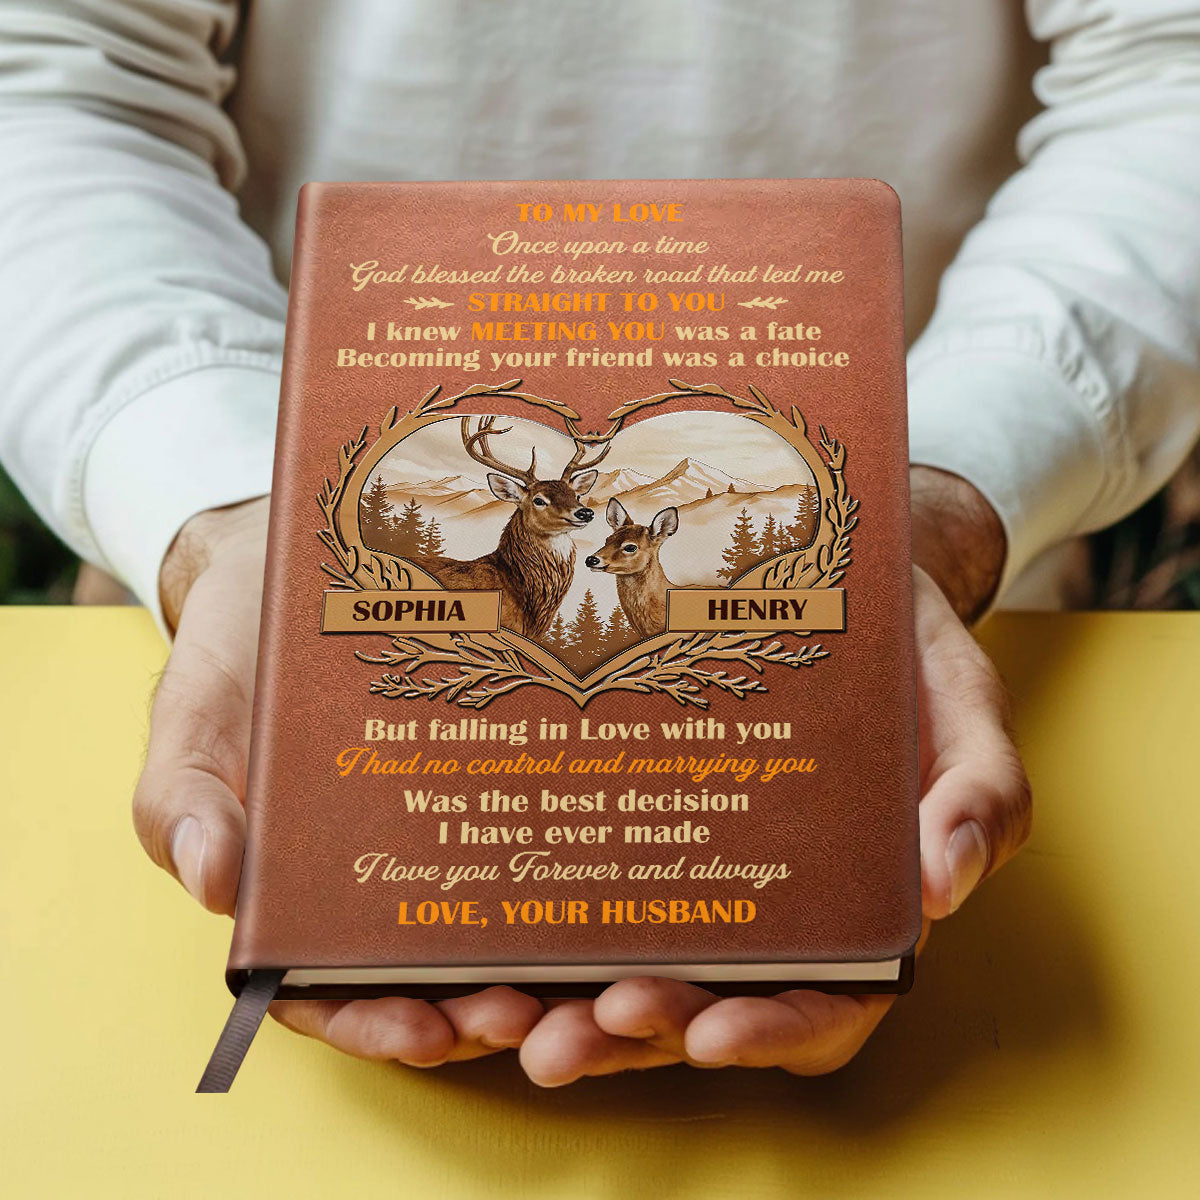 TO MY LOVE
Once upon a time
God blessed the broken road that led me
STRAIGHT TO YOU
I knew MEETING YOU was a fate
Becoming your friend was a choice
SOPHIA
HENRY
But falling in Love with you
I had no control and marrying you
Was the best decision
I have ever made
I love you Forever and always
LOVE, YOUR HUSBAND